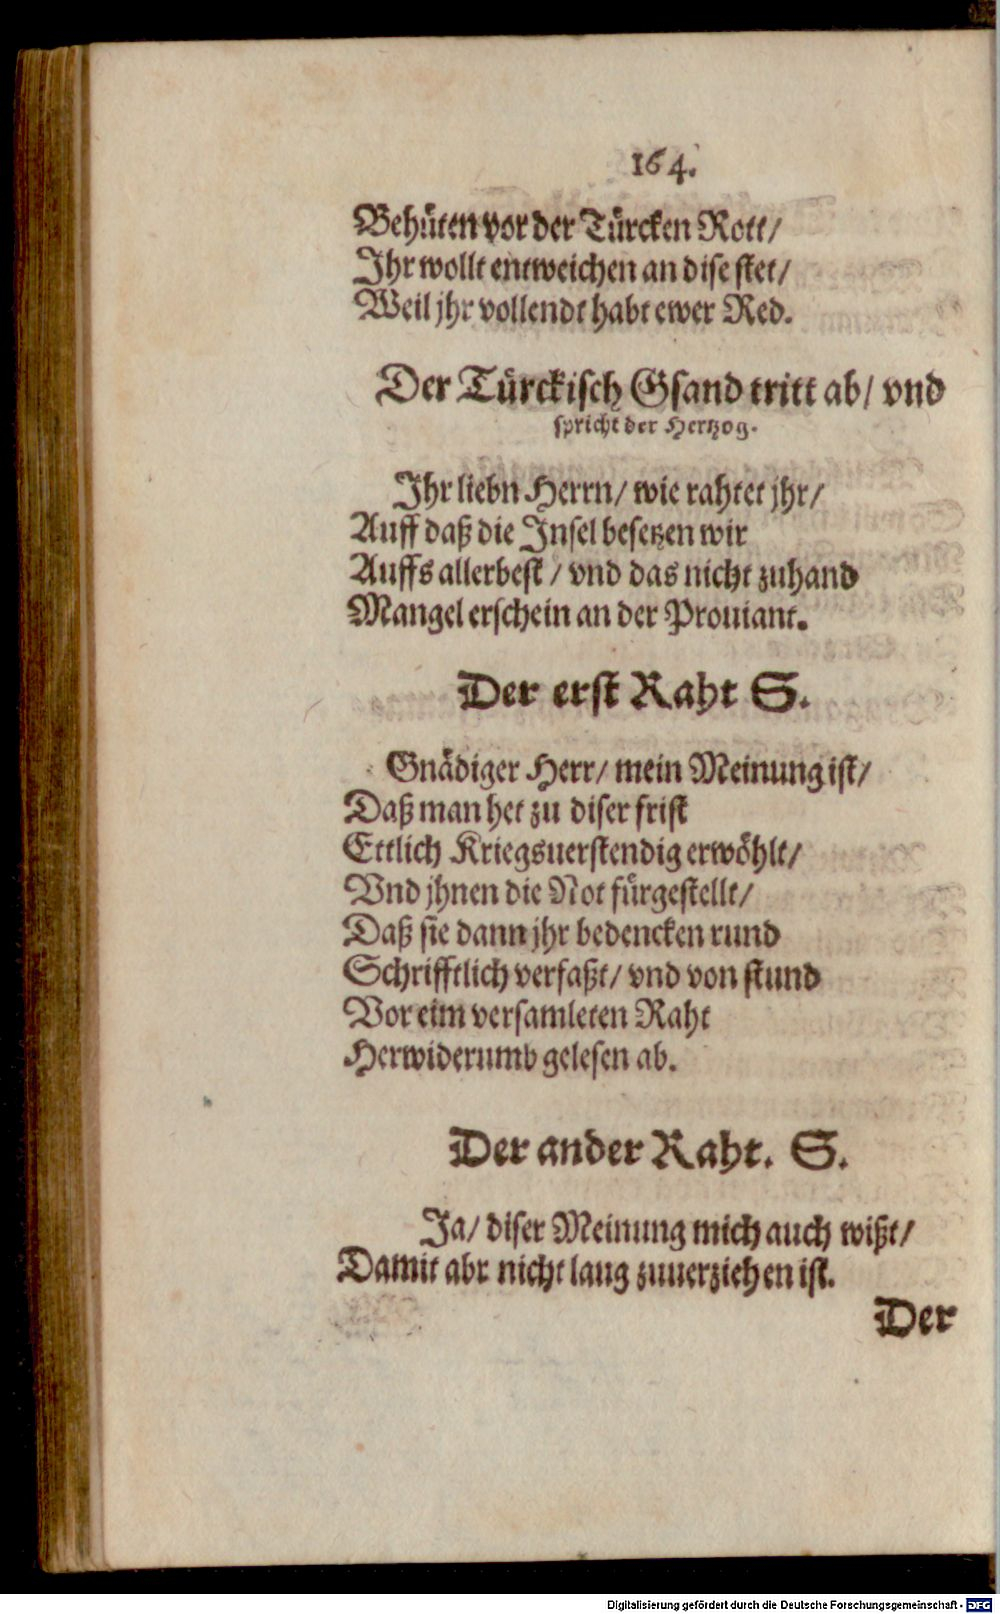 164.
Behüten vor der Türcken Rott/
Ihr wollt entweichen an dise stet/
Weil jhr vollendt habt ewer Red.
Der Türckisch Gsand tritt ab/ vnd
spricht der Hertzog.
Ihr liebn Herrn/ wie rahtet jhr/
Auff daß die Insel besetzen wir
Auffs allerbest/ vnd das nicht zuhand
Mangel erschein an der Prouiant.
Der erst Raht S.
Gnädiger Herr/ mein Meinung ist/
Daß man het zu diser frist
Ettlich Kriegsuerstendig erwöhlt/
Vnd jhnen die Not fürgestellt/
Daß sie dann jhr bedencken rund
Schrifftlich verfaßt/ vnd von stund
Vor eim versamleten Raht
Herwiderumb gelesen ab.
Der ander Raht. S.
Ja/ diser Meinung mich auch wißt/
Damit abr nicht lang zuuerziehen ist.
Der
Digitalisierung gefördert durch die Deutsche Forschungsgemeinschaft - DFG